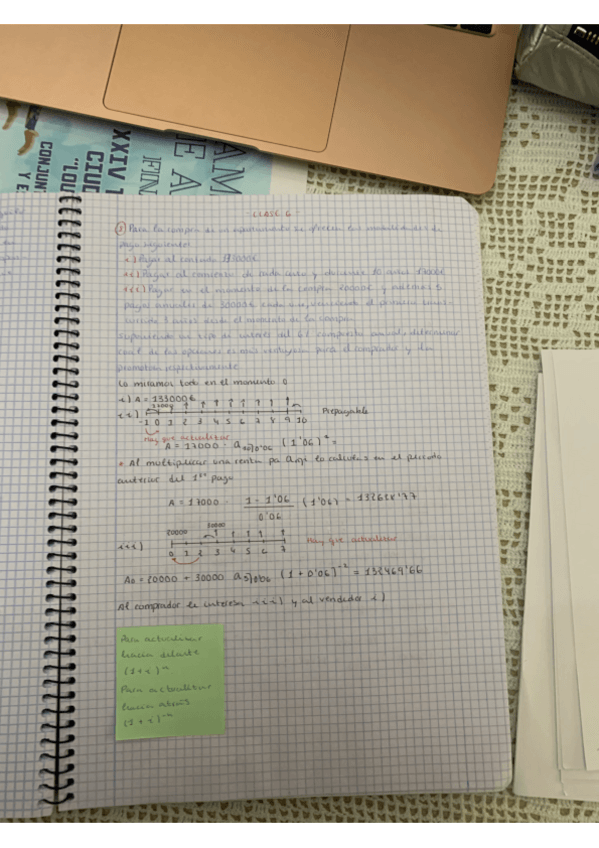 AM
E A
FIN
XXIV
CIUD
"LOU
CONJUN
Y E
CLASE 6
Para la compra de un apartamento se ofrecen las modalidades de
pago siguientes:
i) Pagar al contado 133000€
ii) Pagar al comienzo de cada año y durante 10 años 17000€
iii) Pagar en el momento de la compra 20000€ y además 5
pagos anuales de 30000€ cada uno, venciendo el primero
3 años desde el momento de la compra.
Suponiendo un tipo de interés del 6% compuesto anual, determinar
cual de las opciones es más ventajosa para el comprador y
promotor respectivamente
Lo miramos todo en el momento 0
i) A = 133000€
ii) 17000
-1 0 1 2 3 4 5 6 7 8 9 10 Prepagable
Hay que actualizar
A = 17000 · a10|0'06 (1'06)¹ =
* Al multiplicar una renta pa aqi lo calculas en el periodo
anterior del 1er pago
A = 17000 1 - 1'06 / 0'06 (1'06) = 132628'77
iii) 20000 30000
0 1 2 3 4 5 6 7 Hay que actualizar
A0 = 20000 + 30000 a5|0'06 (1 + 0'06)⁻² = 132469'66
Al comprador le interesa iii) y al vendedor i)
Para actualizar
hacia delante
(1+i)ⁿ
Para actualizar
hacia atrás
(1+i)⁻ⁿ